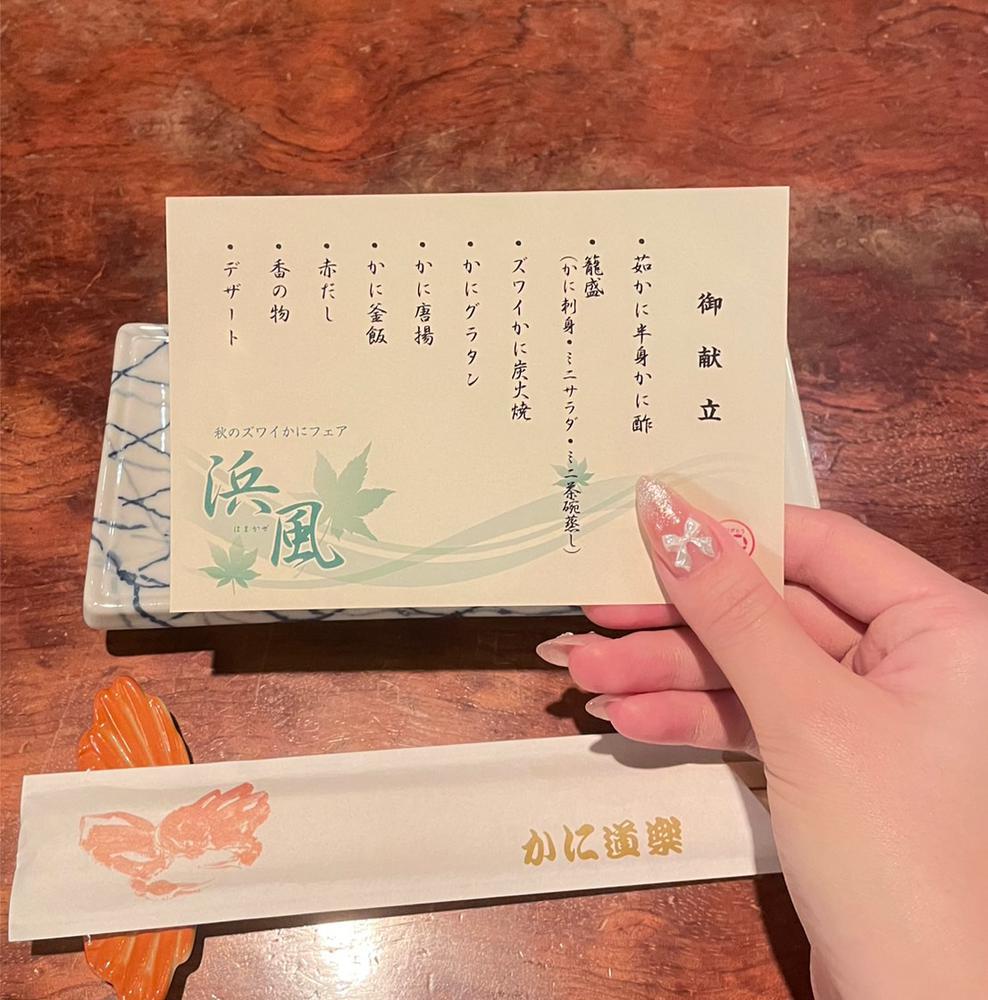 御献立
・茹かに半身かに酢
・籠盛
（かに刺身・ミニサラダ・ミニ茶碗蒸し）
・ズワイかに炭火焼
・かにグラタン
・かに唐揚
・かに釜飯
・赤だし
・香の物
・デザート
秋のズワイかにフェア
浜風
はまかぜ
かに道楽